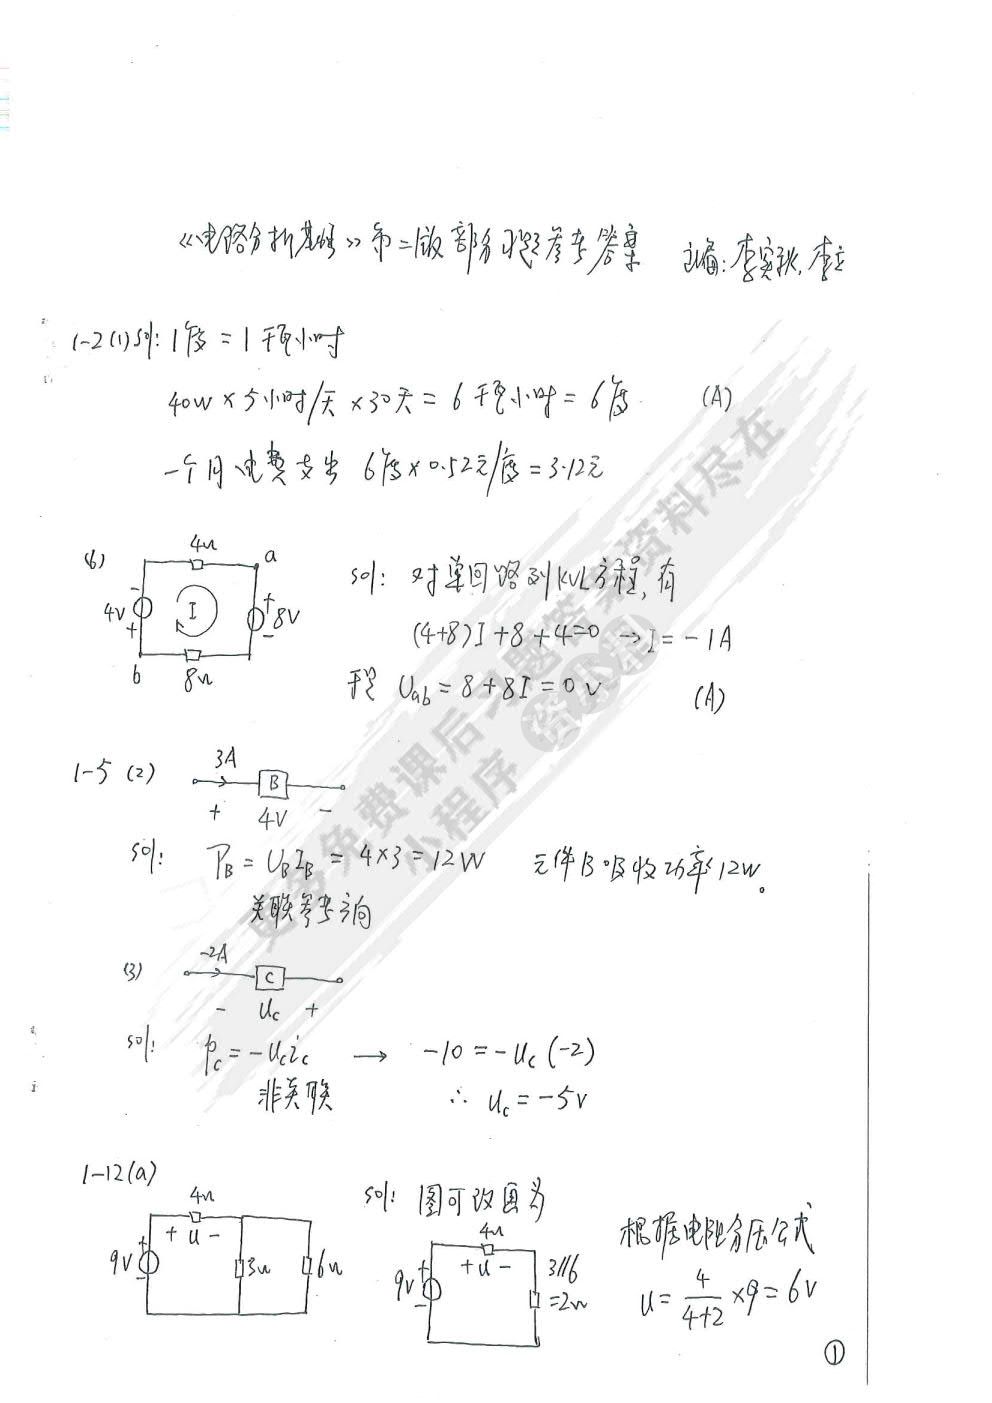 《电路分析基础》第二版部分习题参考答案 主编：李实秋，李立
1-2(1) sol: 1度 = 1千瓦小时
40W × 5小时/天 × 30天 = 6千瓦小时 = 6度 (A)
一个月电费支出 6度×0.52元/度 = 3.12元
(6)
4Ω
a
4V
- +
I
+ -
8V
b
8Ω
sol: 对单回路列KVL方程，有
(4+8)I+8+4=0 → I=-1A
于是 Uab = 8+8I = 0V (A)
1-5 (2)
3A
B
+ 4V -
sol: PB = UBIB = 4×3 = 12W 元件B吸收功率12W。
关联参考方向
(3)
-2A
C
- uc +
sol: pc = -ucic → -10 = -uc(-2)
非关联 ∴ uc = -5V
1-12(a)
4Ω
+ u -
9V
+ -
3Ω
6Ω
sol: 图可改画为
4Ω
+ u -
9V
+ -
3//6
=2Ω
根据电阻分压公式
u = 4/(4+2) ×9 = 6V
①
更多免费课后习题答案资料尽在
小程序